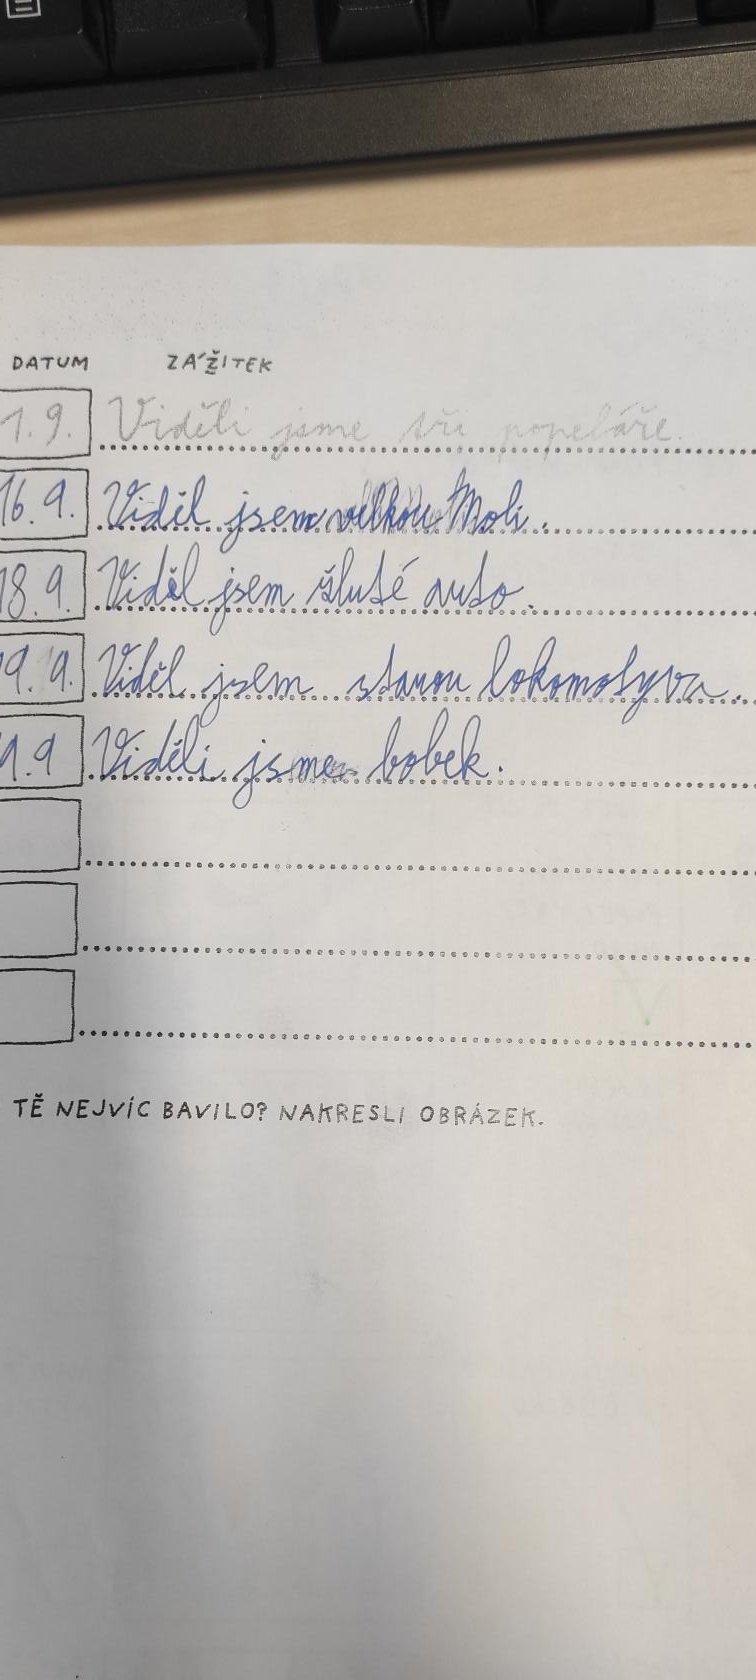 DATUM ZÁŽITEK
1. 9. Viděli jsme tři popeláře.
16. 9. Viděl jsem velkou Moli.
18. 9. Viděl jsem žluté auto.
19. 9. Viděl jsem starou lokomotyva.
9. 9 Viděli jsme bobek.
TĚ NEJVÍC BAVILO? NAKRESLI OBRÁZEK.